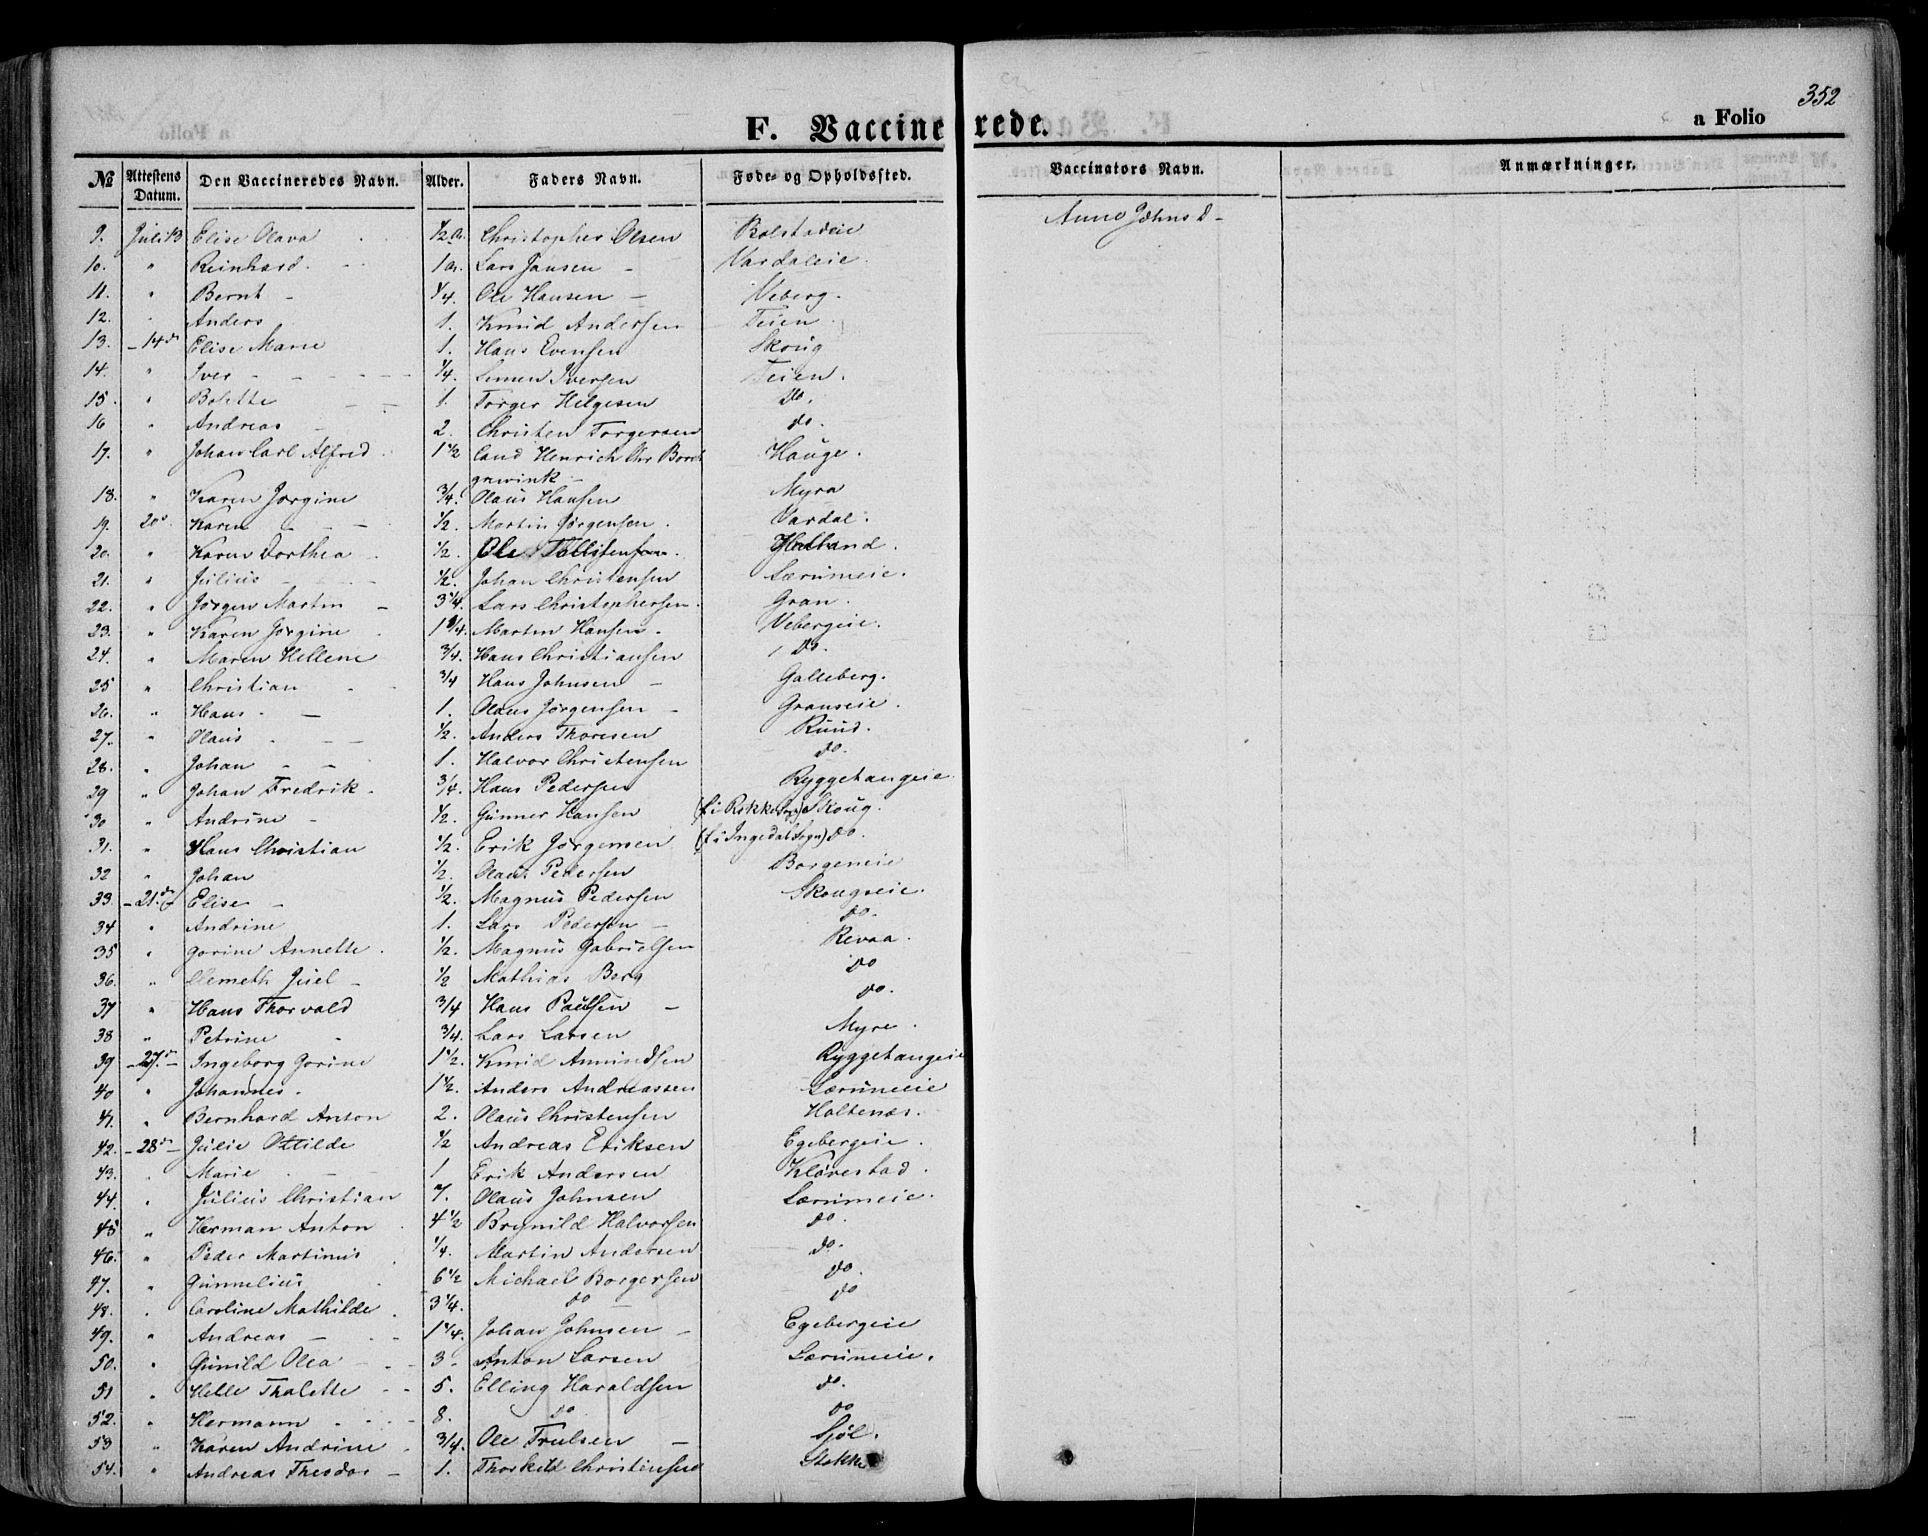 352
F. Vaccinerede.
a Folio
№ Attestens Datum. Den Vaccineredes Navn. Alder. Faders Navn. Føde- og Opholdssted. Vaccinators Navn. Anmærkninger.
9. Juli 13 Elise Olava ½ a. Christopher Olsen Bolstadeie
10. " Reinhard. 1 a. Lars Jansen Vardaleie.
11. " Bernt ¼. Ole Hansen Veberg.
12. " Anders 1. Knud Andersen Teien
13. 14de Elise Marie 1. Hans Evensen Skoug
14. " Iver ¼. Simen Iversen Teien.
15. " Bolette 1. Torger Helgesen Do.
16 " Andreas 2. Christen Torgersen do.
17. " Johan Carl Alfred 1½ Cand Henrich Chr Borch
grevink Hauge.
18. " Karen Jørgine ¾. Olaus Hansen Myra
19. 20de Karen ½. Martin Jørgensen. Vardal.
20. " Karen Dorthea ½. Ole Tollefsen
21. " Julius ½. Johan Christensen Lærumeie.
22. " Jørgen Martin 3¼. Lars Christophersen. Gran.
23. " Karen Jørgine 1¾. Martin Hansen. Vebergeie.
24. " Maren Hellene ¾. Hans Christiansen Do.
25 " Christian ¾ Hans Johnsen Galleberg.
26. " Hans 1. Olaus Jørgensen Granseie.
27. " Olaus ½. Anders Thoresen Ruud.
28. " Johan 1. Halvor Christensen do.
29 " Johan Fredrik. ¾. Hans Pedersen Ryggetangeie
30 " Andrine ½. Gunner Hansen (f. i Rokke Sogn) Skoug.
31. " Hans Christian ½. Erik Jørgensen (f. i Ingedal Sogn) do.
32 " Johan ½. Olaus Pedersen Borgeneie
33. 21de Elise ½. Magnus Pedersen Skougseie.
34 " Andrine 1. Lars Pedersen do.
35 " Gorine Annette. ½. Magnus Gabrielsen Revaa.
36. " Clemeth Juel ½ Mathias Berg Do
37 " Hans Thorvald ¾ Hans Paulsen do.
38 " Petrine ¾. Lars Larsen Myre.
39 27de Ingeborg Gorine 1½. Knud Amundsen Ryggetangeie
40 " Johannes. 1½. Anders Andreassen Lærumeie
41. " Bernhard Anton 2. Olaus Christensen Holtenæs.
42. 28de Julie Ottilde ½ Andreas Eriksen Egebergeie.
43. " Marie 1 Erik Andersen Kløvestad.
44. " Julius Christian 7. Olaus Johnsen Lærumeie.
45 " Herman Anton 4½ Brynild Halvorsen do.
46. " Peder Martinus ¼. Martin Andersen do.
47. " Gunnelius 6½ Michael Borgersen Do.
48. " Caroline Mathilde. 3¼. Do do
49. " Andreas 1¼. Johan Johnsen Egebergeie
50. " Gunild Olea 3. Anton Larsen Lærumeie.
51 " Helle Thalette 5. Elling Haraldsen do.
52. " Hermann 8. Do do
53 " Karen Andrine ¾. Ole Trulsen Sjøl.
54. " Andreas Theodor 1. Thorkild Christensen Stokke
Anne Johnsd